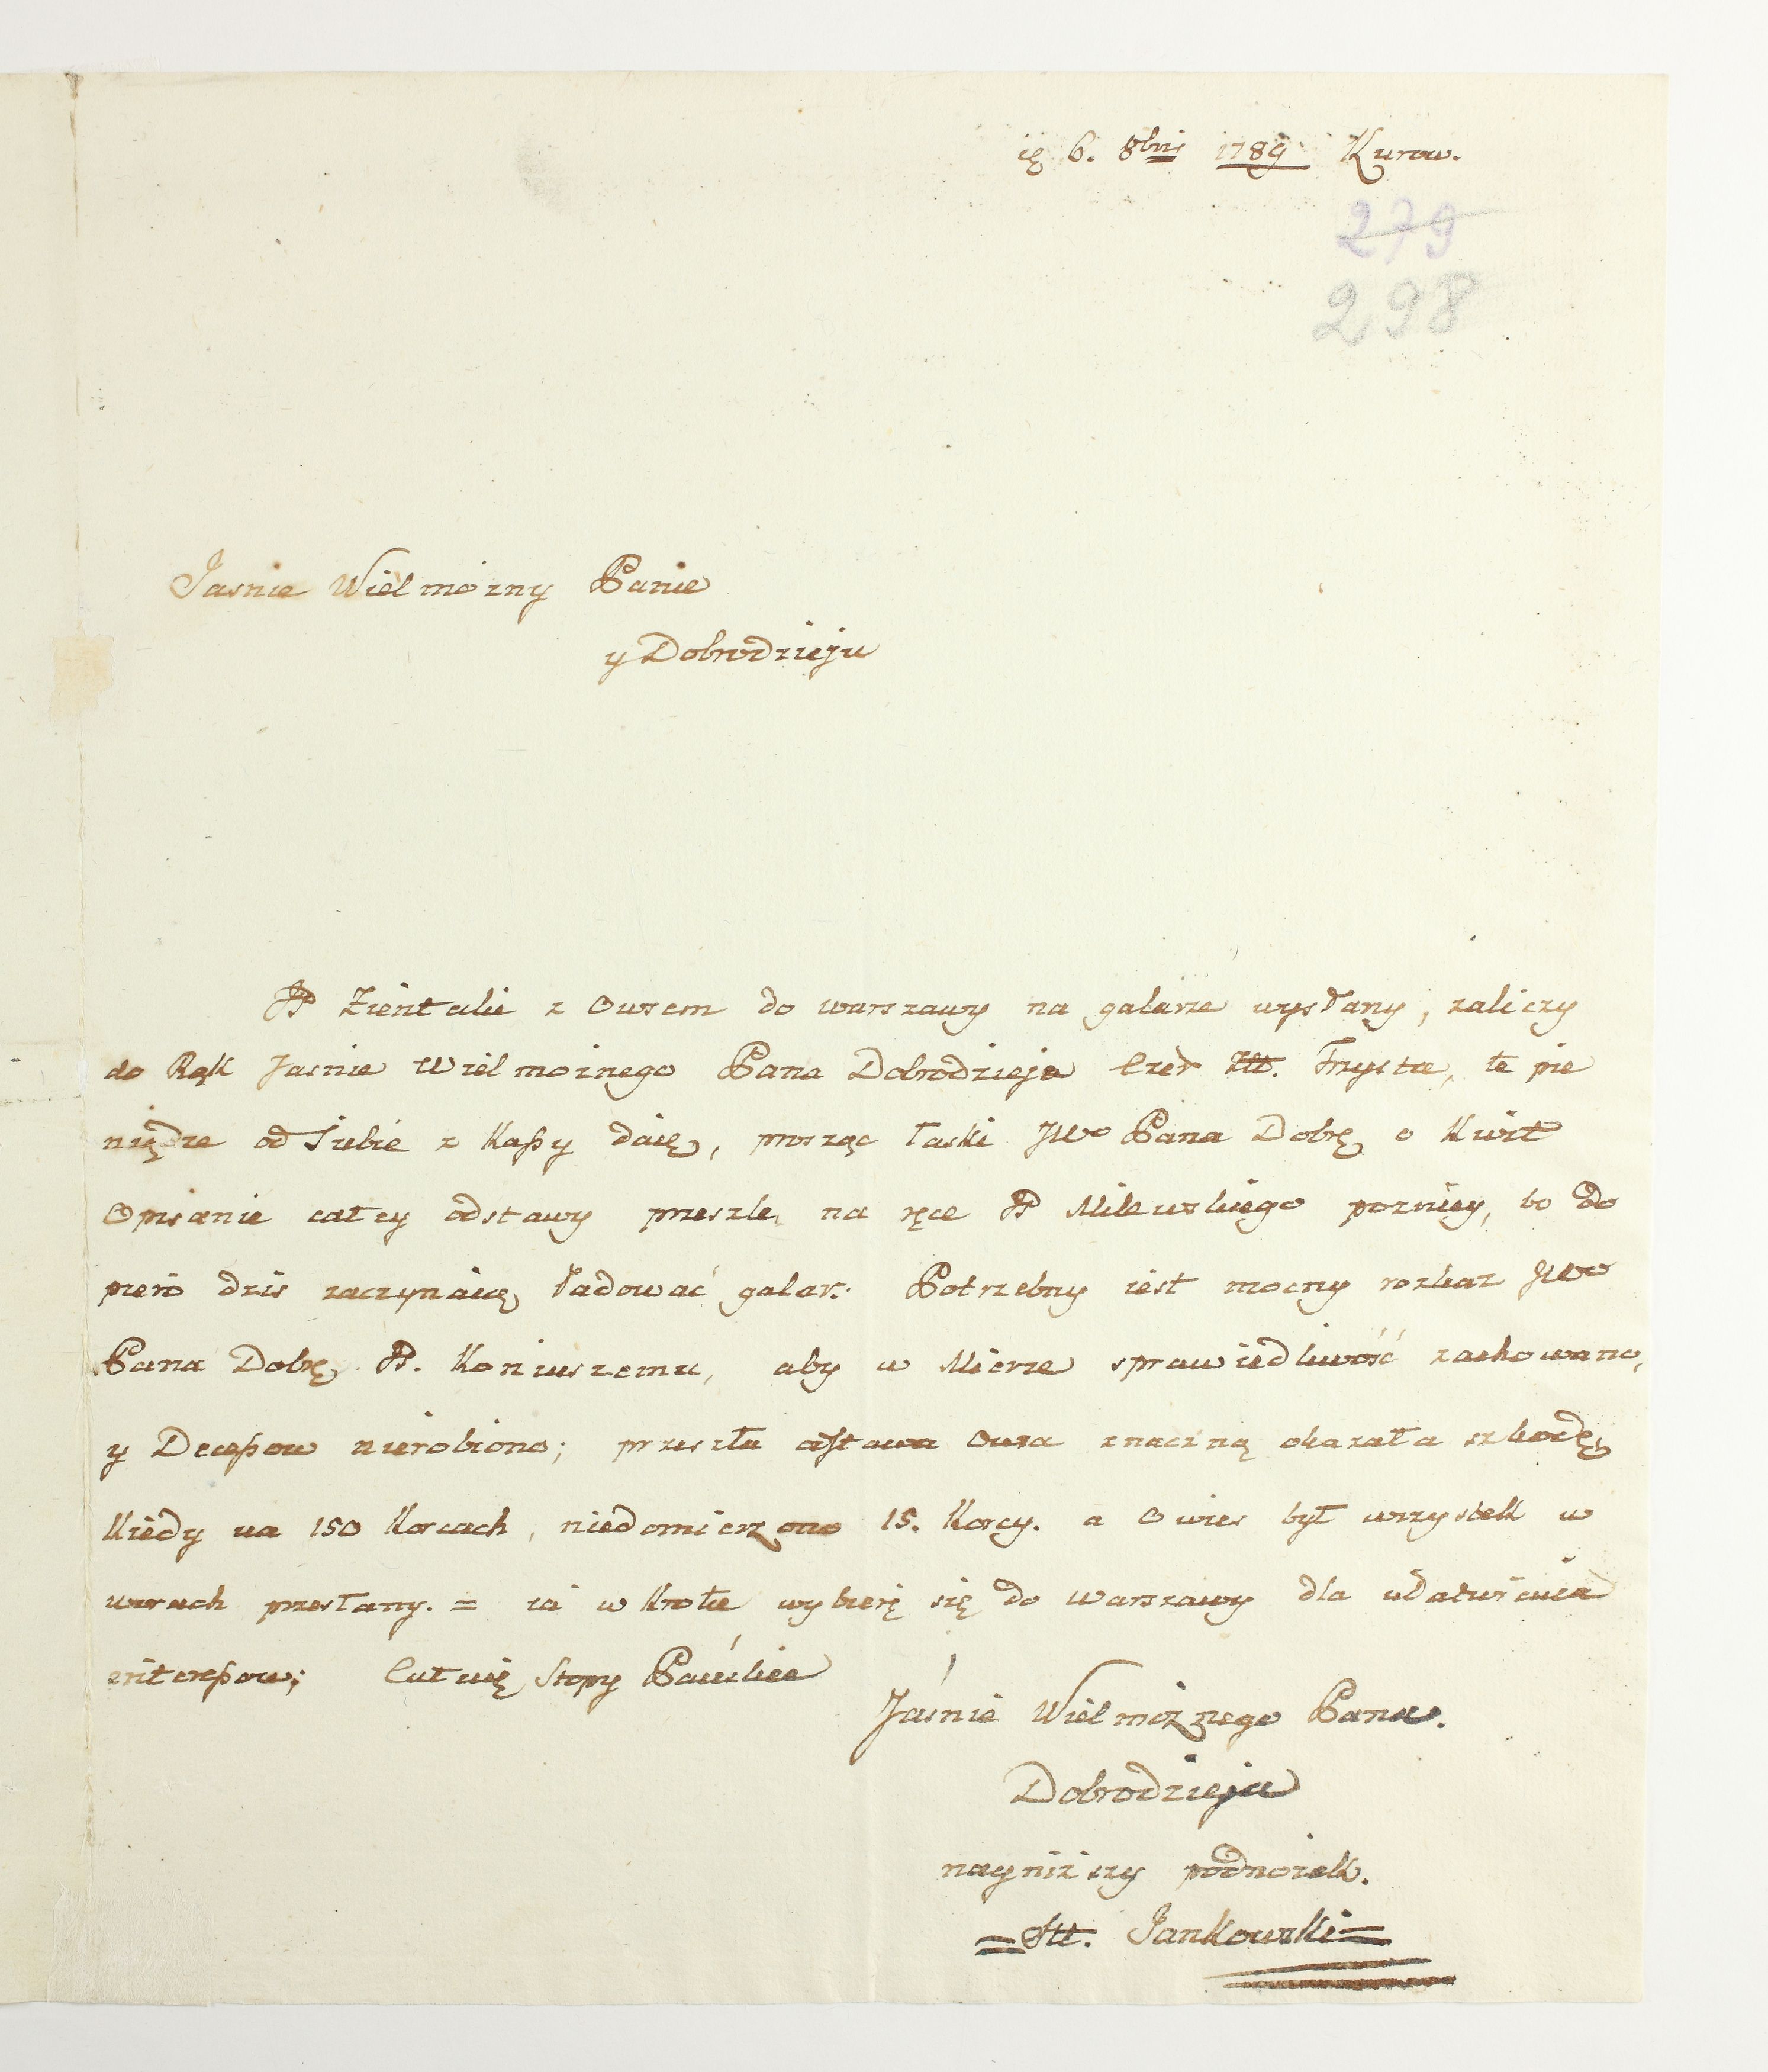 6. 8bris 1789 Kurow.
279
298
Jasnie Wielmożny Panie
y Dobrodzieju
JP Zientalie z Owsem do warszawy na galarze wysłany, zaliczy
do Rąk Jasnie Wielmożnego Pana Dobrodzieja Czer Złł. Trzysta, te pie
niędze od Siebie z Kaſsy daię, prosząc łaski JWo Pana Dobrę o Kwit
Opisanie całey odstawy przeszlę na ręce JP Milewskiego pozniey, bo do
piero dzis zaczynaię ładować galar. Potrzebny iest mocny rozkaz JWo
Pana Dobrę JP. Koniuszemu, aby w Mierze sprawiedliwość zachowano,
y Deceſsow nierobiono; przeszła odstawa Owsa znaczną okazała szkodę,
Kiedy na 150 Korcach, niedomierzono 15. Korcy. a Owies był wszystek w
worach przesłany. = ia w Krotce wybierę się do Warszawy dla ułatwienia
interesſow; Całuię Stopy Pańskie
Jaśnie Wielmożnego Pana.
Dobrodzieja
nayniższy podnożek.
=Stt. Jankowski=